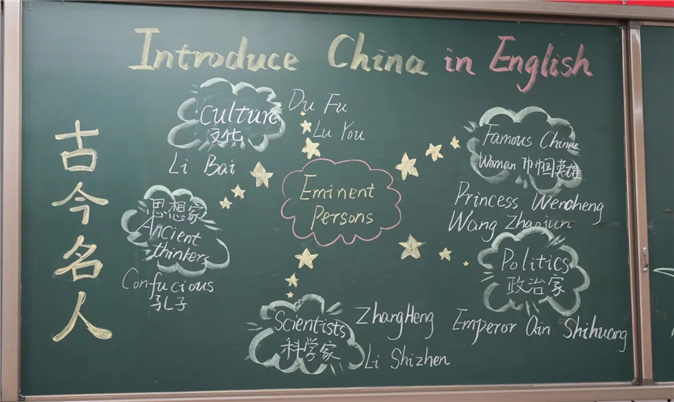 Introduce China in English
古今名人
Culture
文化
Du Fu
Lu You
Li Bai
思想家
Ancient
thinkers
Confucious
孔子
Eminent
Persons
Famous Chinese
Woman 巾帼英雄
Princess Wencheng
Wang Zhaojun
Politics
政治家
Emperor Qin Shihuang
Scientists
科学家
ZhangHeng
Li Shizhen